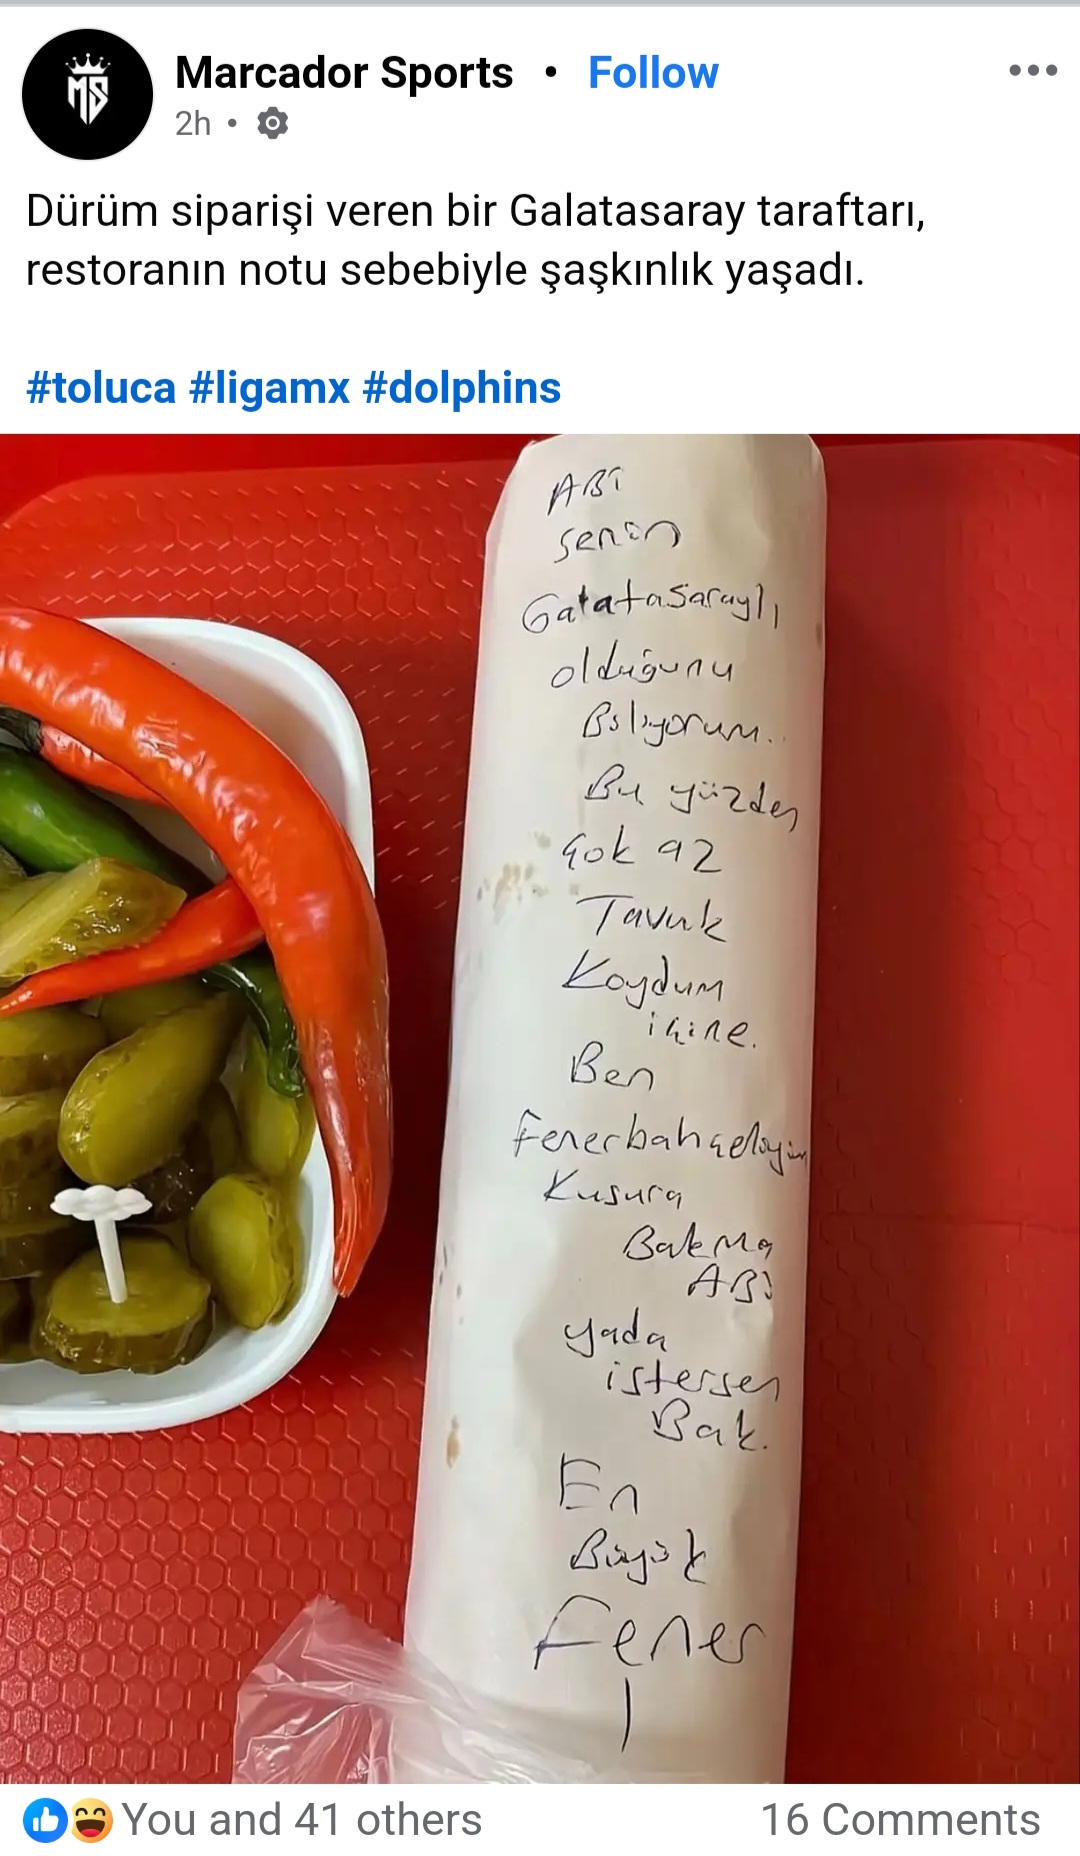 MS
Marcador Sports • Follow
2h •
Dürüm siparişi veren bir Galatasaray taraftarı,
restoranın notu sebebiyle şaşkınlık yaşadı.
#toluca #ligamx #dolphins
ABİ
senin
Galatasaraylı
olduğunu
Biliyorum..
Bu yüzden
Çok az
Tavuk
Koydum
içine.
Ben
Fenerbahçeliyim
Kusura
Bakma
ABİ
yada
istersen
Bak.
En
Büyük
Fener
You and 41 others
16 Comments